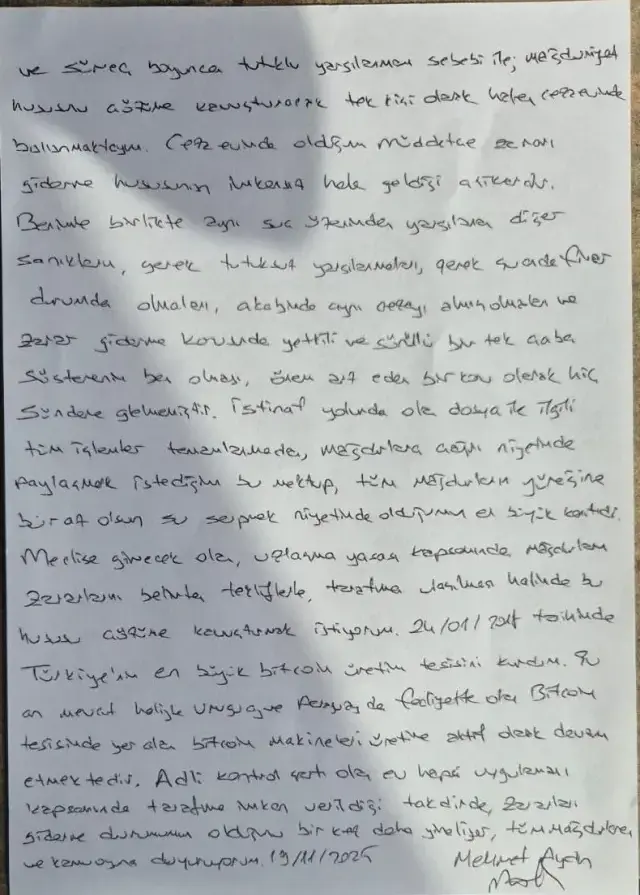 ve süreç boyunca tutuklu yargılanmam sebebi ile; mağduriyet
hususu çözüme kavuşturacak tek kişi olarak halen cezaevinde
bulunmaktayım. Cezaevinde olduğum müddetçe zararı
giderme hususunun imkansız hale geldiği aşikardır.
Benimle birlikte aynı suç üzerinden yargılanan diğer
sanıkların, gerek tutuksuz yargılanmaları, gerek şu anda firar
durumda olmaları, akabinde aynı cezayı almış olmaları ve
zarar giderme konusunda yetkili ve gönüllü bir tek çaba
gösterenin ben olması, önem arz eden bir konu olarak hiç
gündeme gelmemiştir. İstinaf yolunda olan dosya ile ilgili
tüm işlemler tamamlanmadan, mağdurlara çağrı niyetinde
paylaşmak istediğim bu mektup, tüm mağdurların yüreğine
biraz olsun su serpmek niyetinde olduğumun en büyük kanıtıdır.
Meclise girecek olan, uzlaşma yasası kapsamında mağdurların
zararlarını belirten tekliflerle, tarafıma ulaşılması halinde bu
hususu çözüme kavuşturmak istiyorum. 24/01/2018 tarihinde
Türkiye'nin en büyük bitcoin üretim tesisini kurdum. Şu
an mevcut haliyle Uruguay ve Paraguay da faaliyette olan Bitcoin
tesisinde yer alan bitcoin makineleri üretime aktif olarak devam
etmektedir. Adli kontrol şartı olan ev hapsi uygulaması
kapsamında tarafıma imkan verildiği takdirde, zararları
giderme durumumun olduğunu bir kez daha yineliyor, tüm mağdurlara
ve kamuoyuna duyuruyorum. 19/11/2025 Mehmet Aydın